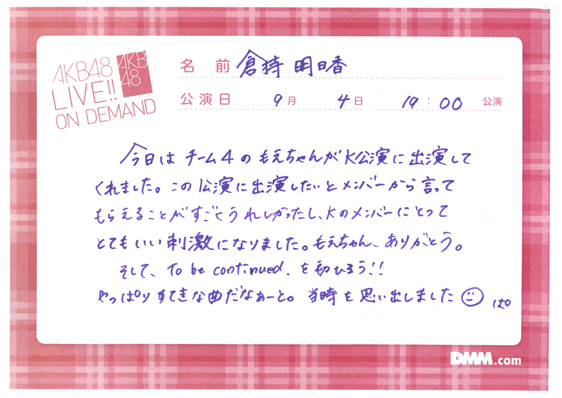 AKB48
LIVE!!
ON DEMAND
AKB
48
名 前 倉持 明日香
公演日 9月 4日 19:00 公演
今日は チーム4 の もえちゃんが K公演に 出演して
くれました。この 公演に出演したいと メンバーから 言って
もらえることが すごくうれしかったし、Kのメンバーにとって
とてもいい 刺激になりました。もえちゃん、ありがとう。
そして、To be continued. を初ひろう!!
やっぱり すてきな曲だなぁーと。 当時を思い出しました ぱ
DMM.com